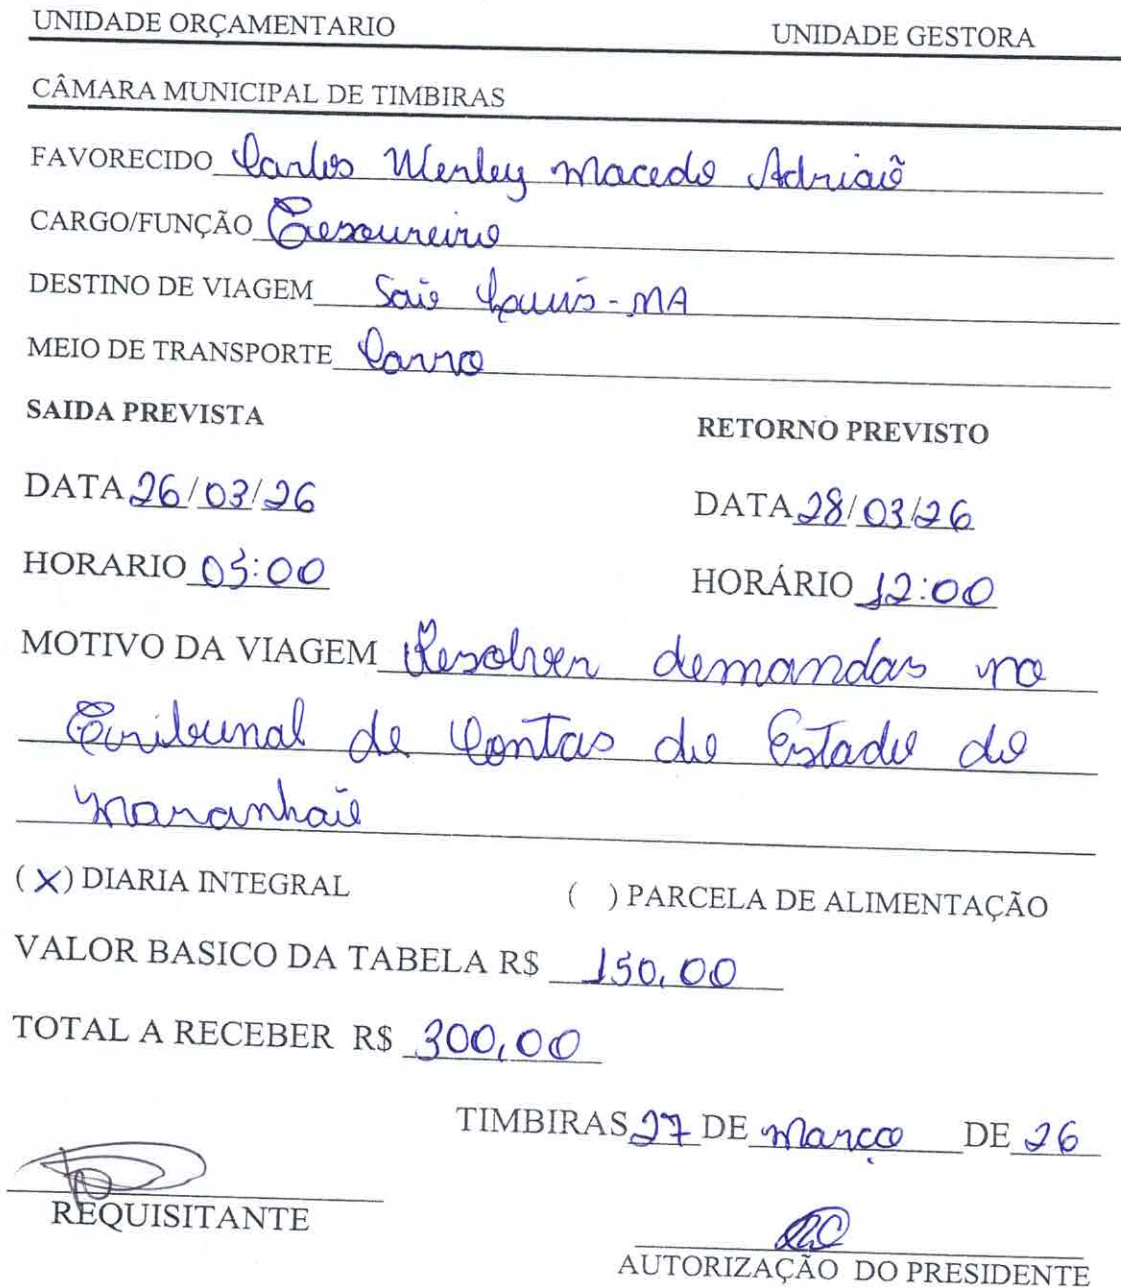 UNIDADE ORÇAMENTARIO UNIDADE GESTORA
CÂMARA MUNICIPAL DE TIMBIRAS
FAVORECIDO Carlos Wenley Macedo Adriaõ
CARGO/FUNÇÃO Tesoureiro
DESTINO DE VIAGEM São Louis-MA
MEIO DE TRANSPORTE Carro
SAIDA PREVISTA RETORNO PREVISTO
DATA 26/03/26 DATA 28/03/26
HORARIO 05:00 HORÁRIO 12:00
MOTIVO DA VIAGEM Resolver demandas no
Tribunal de Contas do Estado do
Maranhão
(X) DIARIA INTEGRAL ( ) PARCELA DE ALIMENTAÇÃO
VALOR BASICO DA TABELA R$ 150,00
TOTAL A RECEBER R$ 300,00
TIMBIRAS 27 DE março DE 26
REQUISITANTE
AUTORIZAÇÃO DO PRESIDENTE